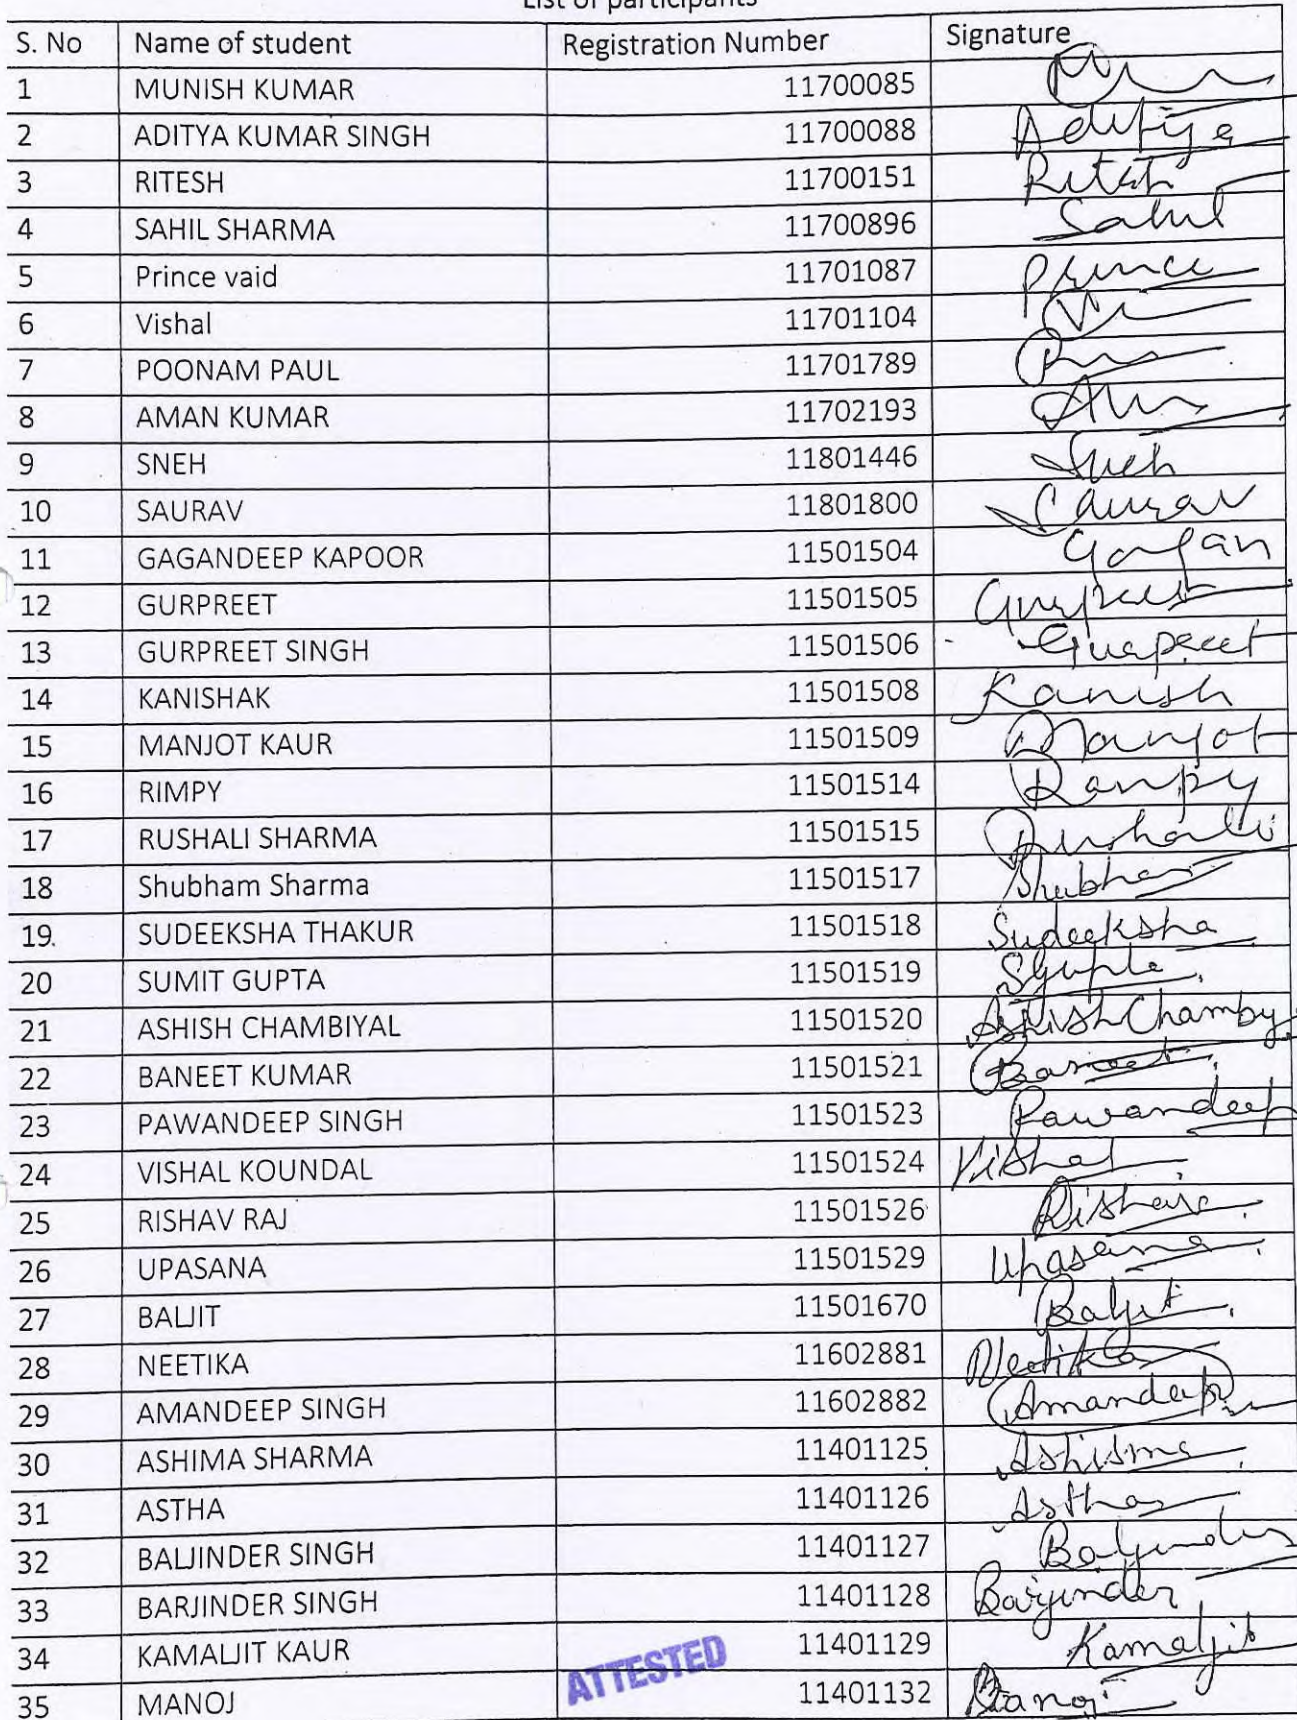 List of participants
S. No Name of student Registration Number Signature
1 MUNISH KUMAR 11700085
2 ADITYA KUMAR SINGH 11700088 Aditya
3 RITESH 11700151 Ritesh
4 SAHIL SHARMA 11700896 Sahil
5 Prince vaid 11701087 Prince
6 Vishal 11701104
7 POONAM PAUL 11701789
8 AMAN KUMAR 11702193
9 SNEH 11801446 Sneh
10 SAURAV 11801800 Saurav
11 GAGANDEEP KAPOOR 11501504 Gagan
12 GURPREET 11501505 Gurpreet
13 GURPREET SINGH 11501506 Gurpreet
14 KANISHAK 11501508 Kanish
15 MANJOT KAUR 11501509 Manjot
16 RIMPY 11501514
17 RUSHALI SHARMA 11501515 Rushali
18 Shubham Sharma 11501517 Shubham
19. SUDEEKSHA THAKUR 11501518 Sudeeksha
20 SUMIT GUPTA 11501519 SGupta
21 ASHISH CHAMBIYAL 11501520 Ashish Chamby
22 BANEET KUMAR 11501521 Baneet
23 PAWANDEEP SINGH 11501523 Pawandeep
24 VISHAL KOUNDAL 11501524 Vishal
25 RISHAV RAJ 11501526
26 UPASANA 11501529 Upasana
27 BALJIT 11501670 Baljit
28 NEETIKA 11602881 Neetika
29 AMANDEEP SINGH 11602882 Amandeep
30 ASHIMA SHARMA 11401125
31 ASTHA 11401126 Astha
32 BALJINDER SINGH 11401127 Baljinder
33 BARJINDER SINGH 11401128 Barjinder
34 KAMALJIT KAUR 11401129 Kamaljit
ATTESTED
35 MANOJ 11401132 Manoj